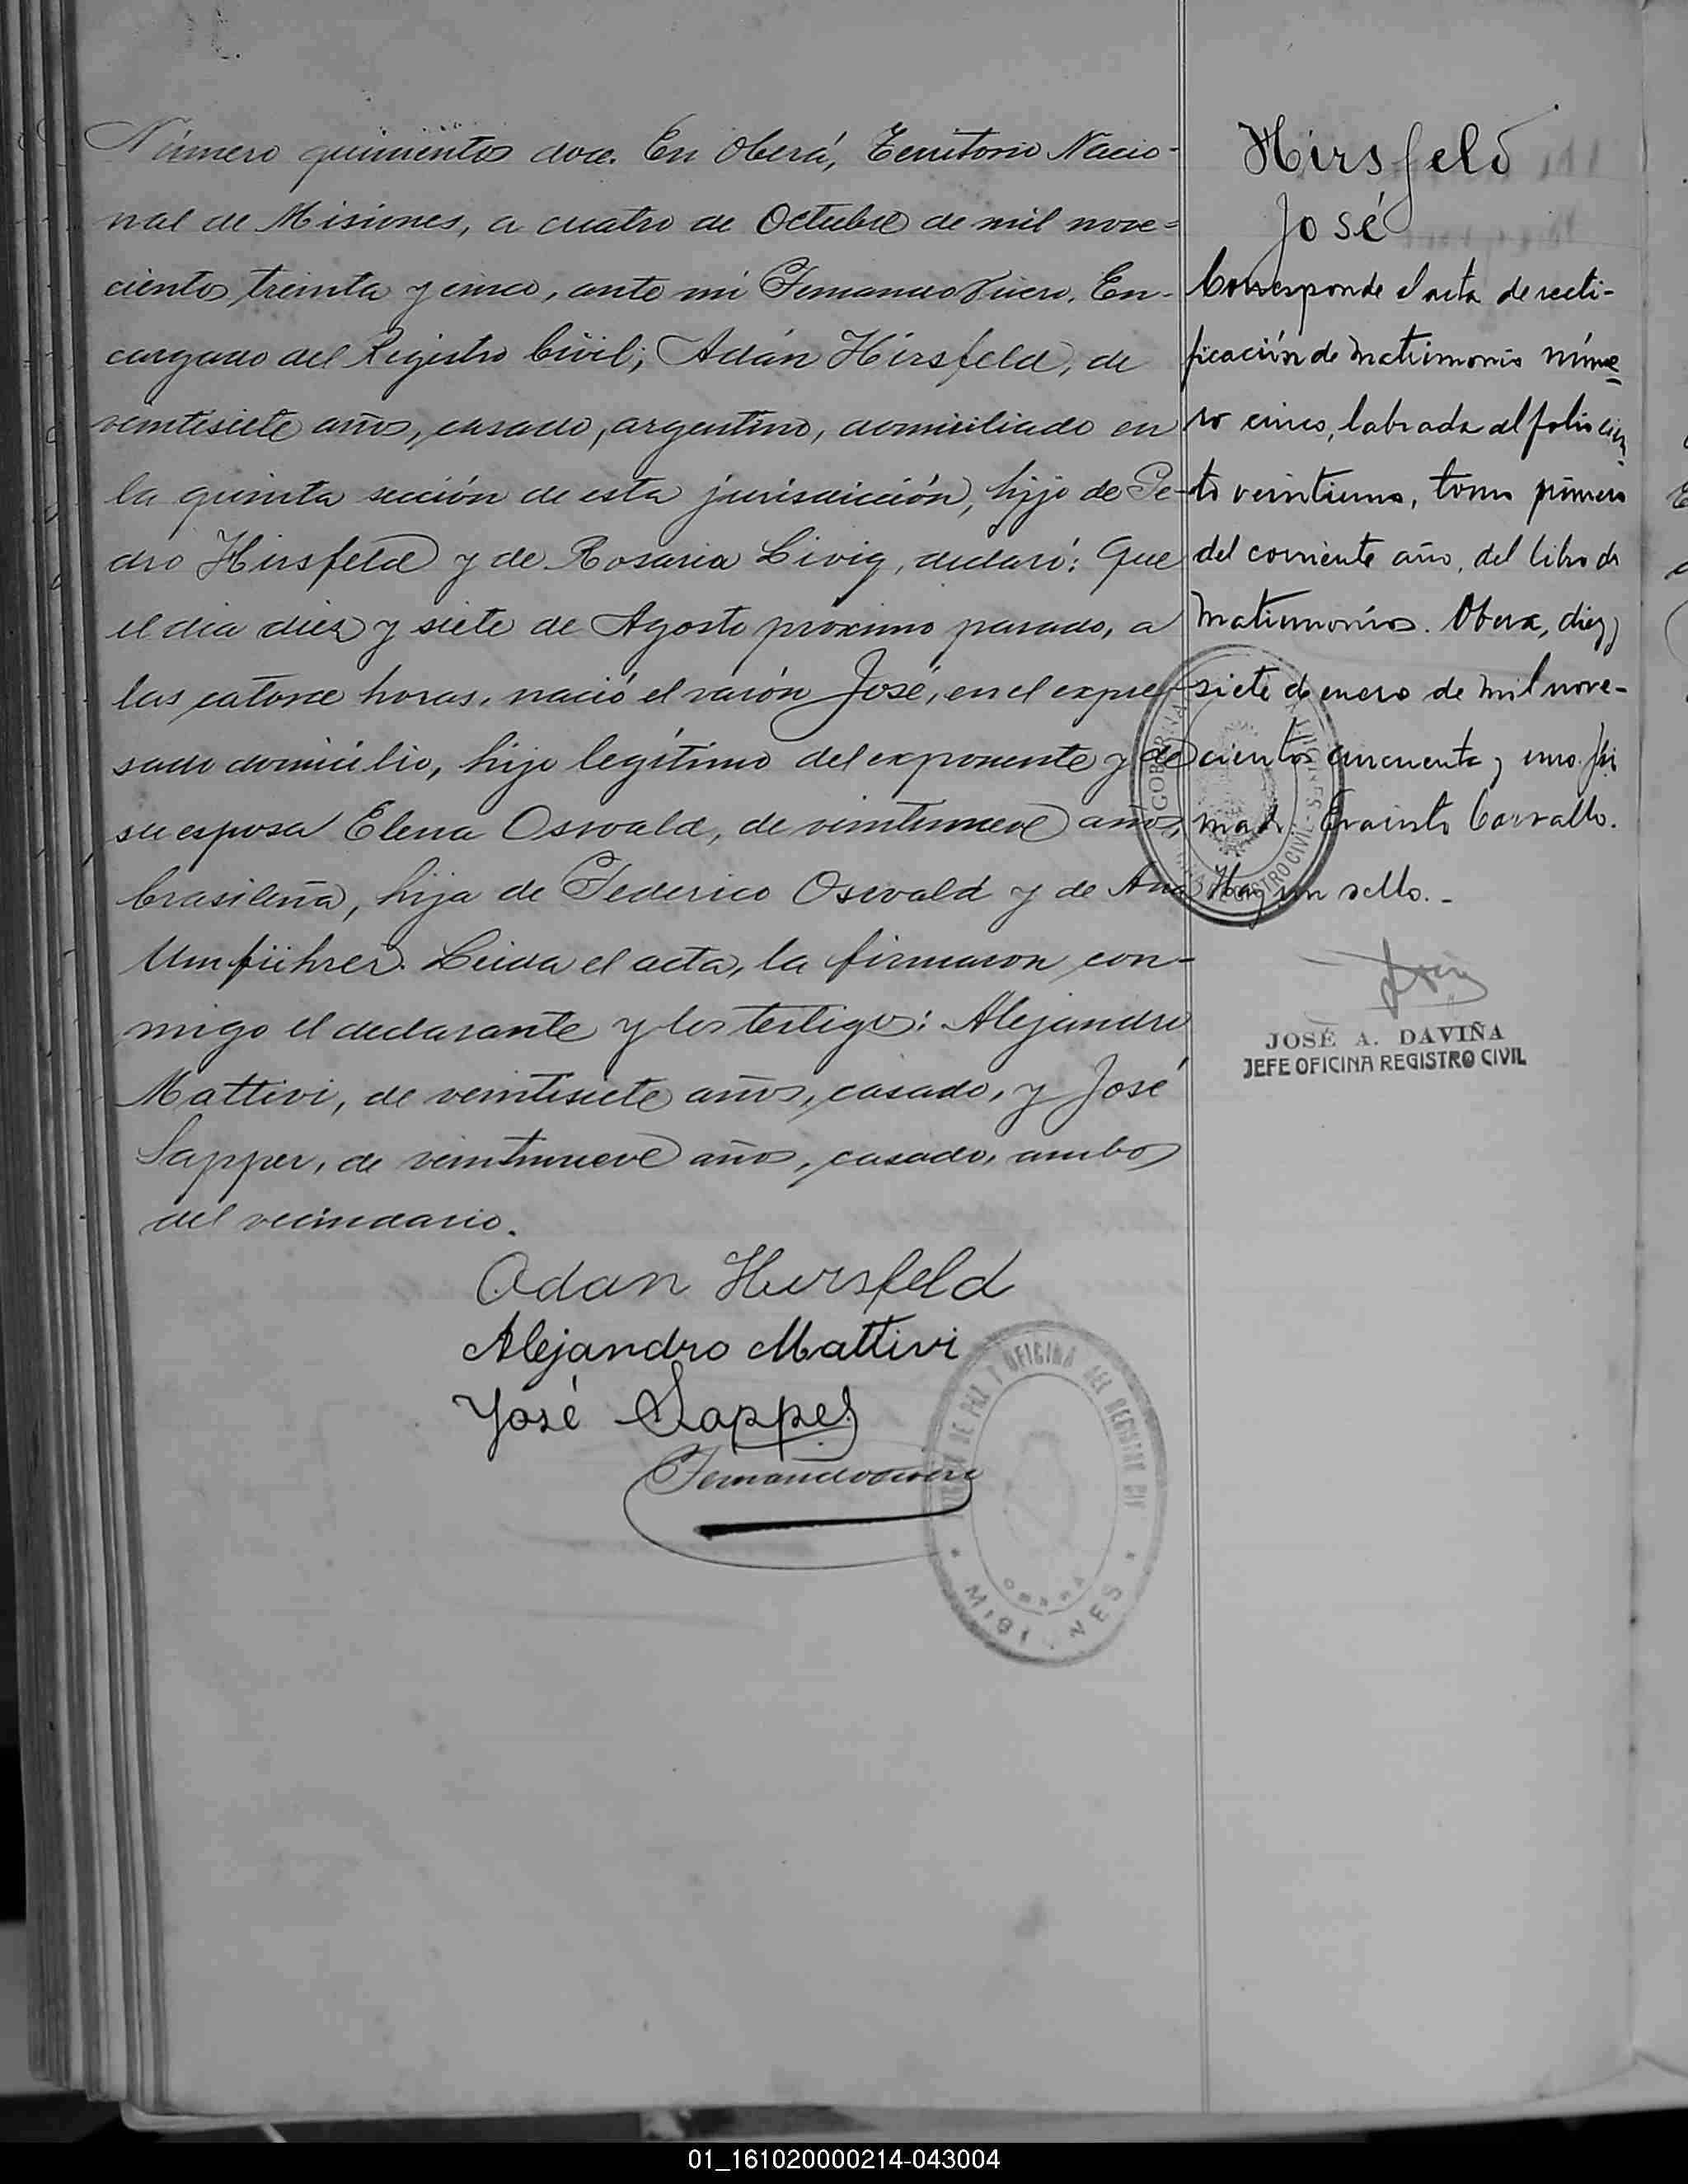 Número quinientos doce. En Oberá, Territorio Nacio-
nal de Misiones, a cuatro de Octubre de mil nove=
cientos treinta y cinco, ante mí Fernando Vivero, En-
cargado del Registro Civil; Adán Hirsfeld, de
veintisiete años, casado, argentino, domiciliado en
la quinta sección de esta jurisdicción, hijo de Pe-
dro Hirsfeld y de Rosaria Livig, declaró: Que
el día diez y siete de Agosto próximo pasado, a
las catorce horas, nació el varón José, en el expre-
sado domicilio, hijo legítimo del exponente y de
su esposa Elena Oswald, de veintinueve años,
brasileña, hija de Federico Oswald y de Ana
Umführer. Leida el acta, la firmaron con-
migo el declarante y los testigos: Alejandro
Mattivi, de veintisiete años, casado, y José
Sapper, de veintinueve años, casado, ambos
del vecindario.
Adan Hirsfeld
Alejandro Mattivi
José Sapper
Fernando Vivero
OFICINA DEL REGISTRO CIV
OBERA
MISIONES
Hirsfeld
José
Corresponde el acta de recti-
ficación de matrimonio núme
ro cinco, labrada al folio cien
to veintiuno, tomo primero
del corriente año, del libro de
matrimonios. Obera, diez y
siete de enero de mil nove-
cientos cincuenta y uno. Fir
mado. Evaristo Carvallo.
Hay un sello.-
REGISTRO CIVIL
JOSÉ A. DAVIÑA
JEFE OFICINA REGISTRO CIVIL
01_161020000214-043004